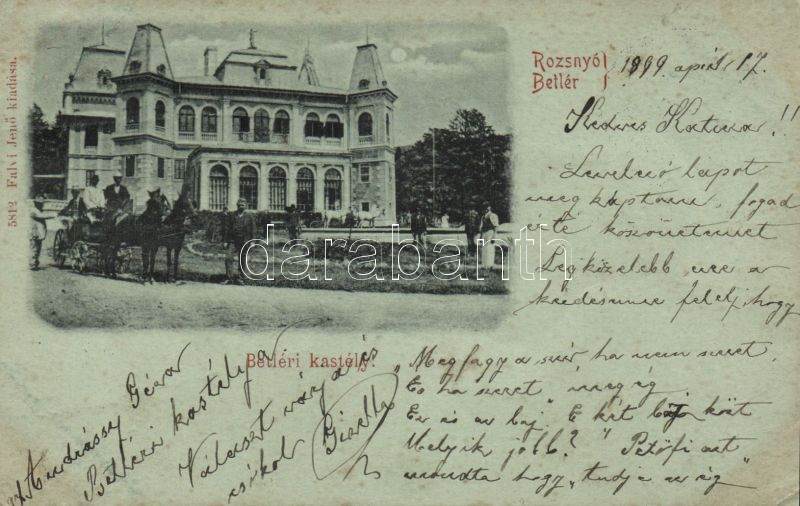 5812 Falvi Jenő kiadása.
Rozsnyó
Betlér
1899 április 17.
Kedves Katica!!
Levelező lapot
meg kaptam, fogad
érte köszönetemet
Legközelebb erre a
kérdésemre felelj, hogy
"Megfagy a szív ha nem szeret.
És ha szeret meg ég
Ez is az baj. E két baj közt
Melyik jobb?" Petőfi azt
mondta hogy "tudja az ég"
Betléri kastély.
Andrássy Géza
Betléri kastélya
Választ vár és
csókol Gizella
darabanth